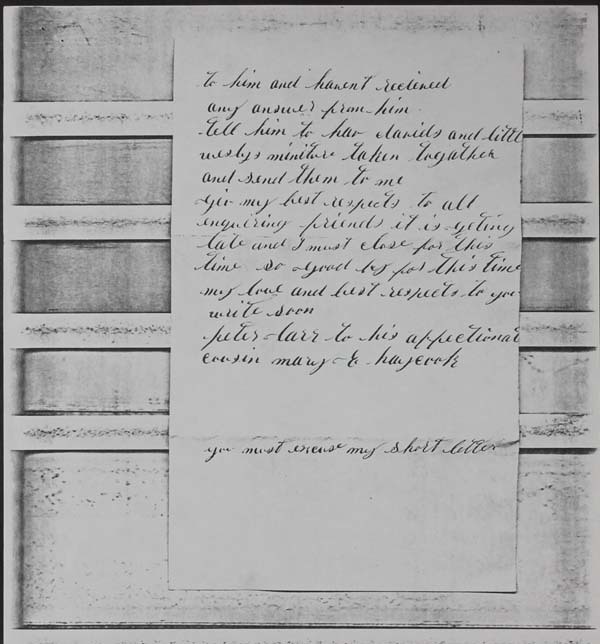 to him and havent recieved
any answer from him
tell him to hav davids and littl
weslys miniture taken togather
and send them to me
giv my best respects to all
enquiring friends it is geting
late and I must close for this
time so good by for this time
my love and best respects to you
write soon
peter Carr to his affectionat
cousin mary E haycook
you must excuse my short letter